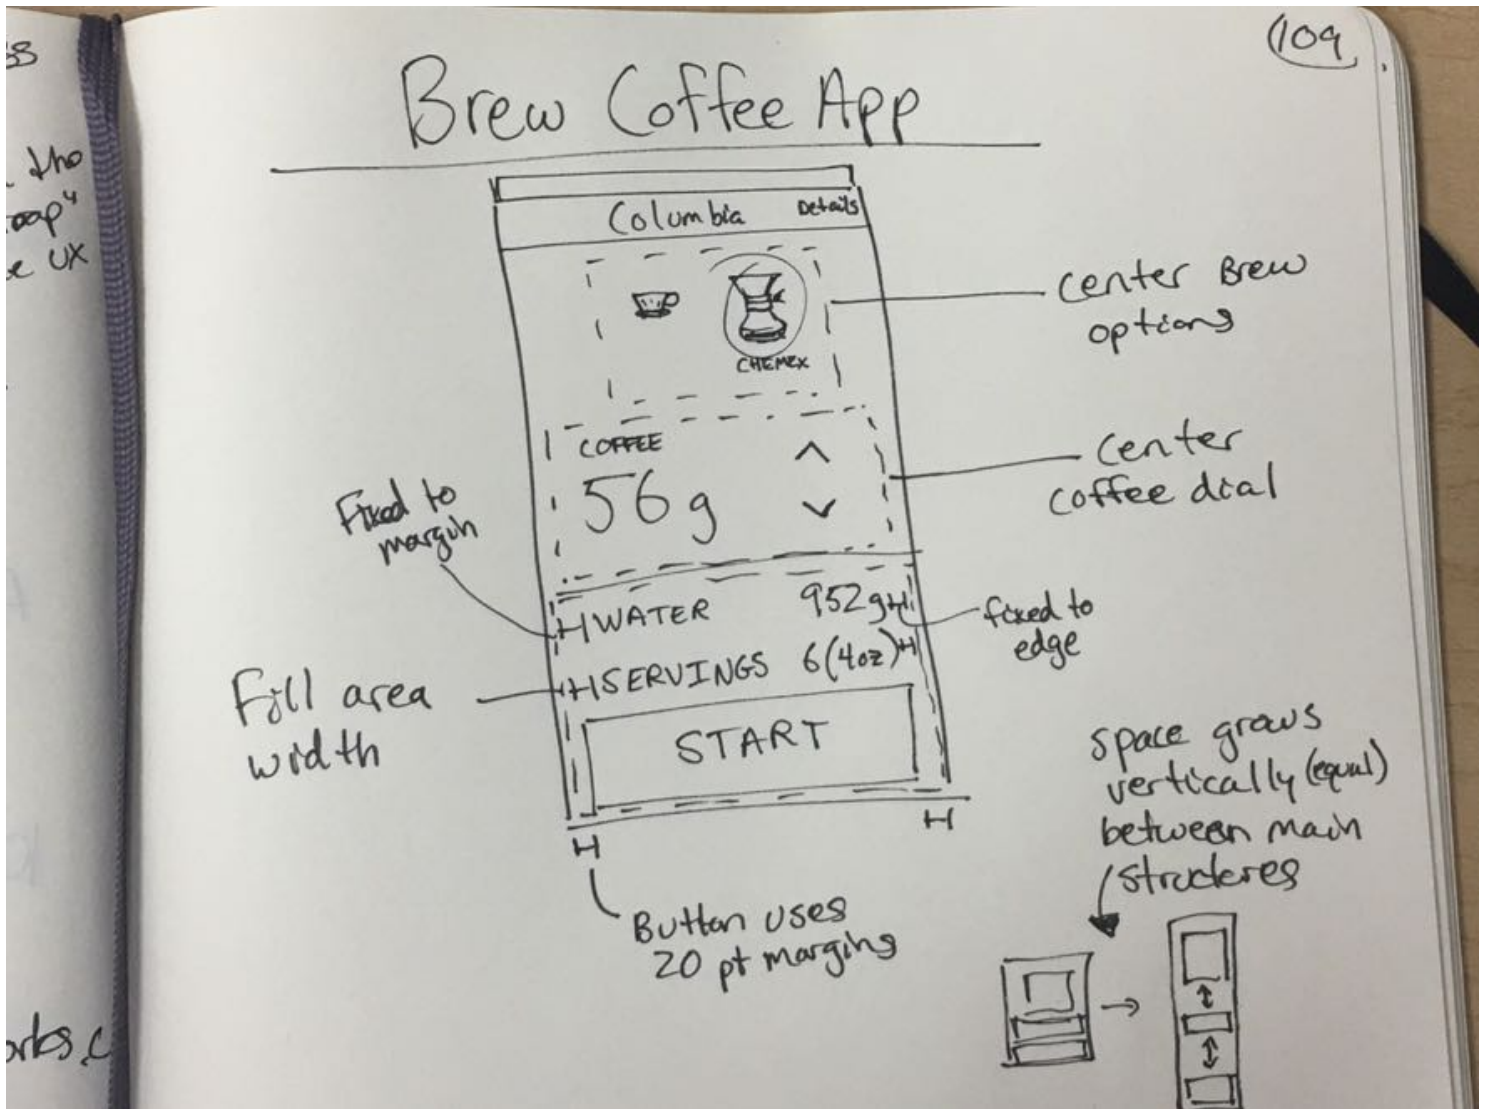 109
Brew Coffee App
the
UX
Columbia Details
CHEMEX
Center Brew
options
COFFEE
56g
Center
coffee dial
Fixed to
margin
WATER 952g
SERVINGS 6(4oz)
fixed to
edge
Fill area
width
START
Button uses
20 pt margins
space grows
vertically (equal)
between main
structures